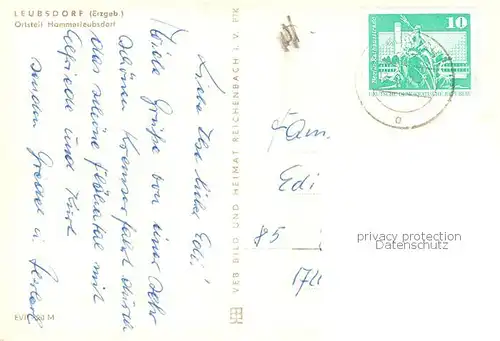 LEUBSDORF (Erzgeb.)
Ortsteil Hammerleubsdorf
Liebe Ilse lieber Edi!
Viele Grüße von einer sehr
schönen Kremserfahrt durch
das schöne Flöhatal mit
Elfriede und Kurt
senden Gretel u. Herbert
EVP M
VEB BILD UND HEIMAT REICHENBACH i. V. PIK
10
Berlin, Rathausstraße
DEUTSCHE DEMOKRATISCHE REPUBLIK
Fam.
Edi
85
privacy protection
Datenschutz